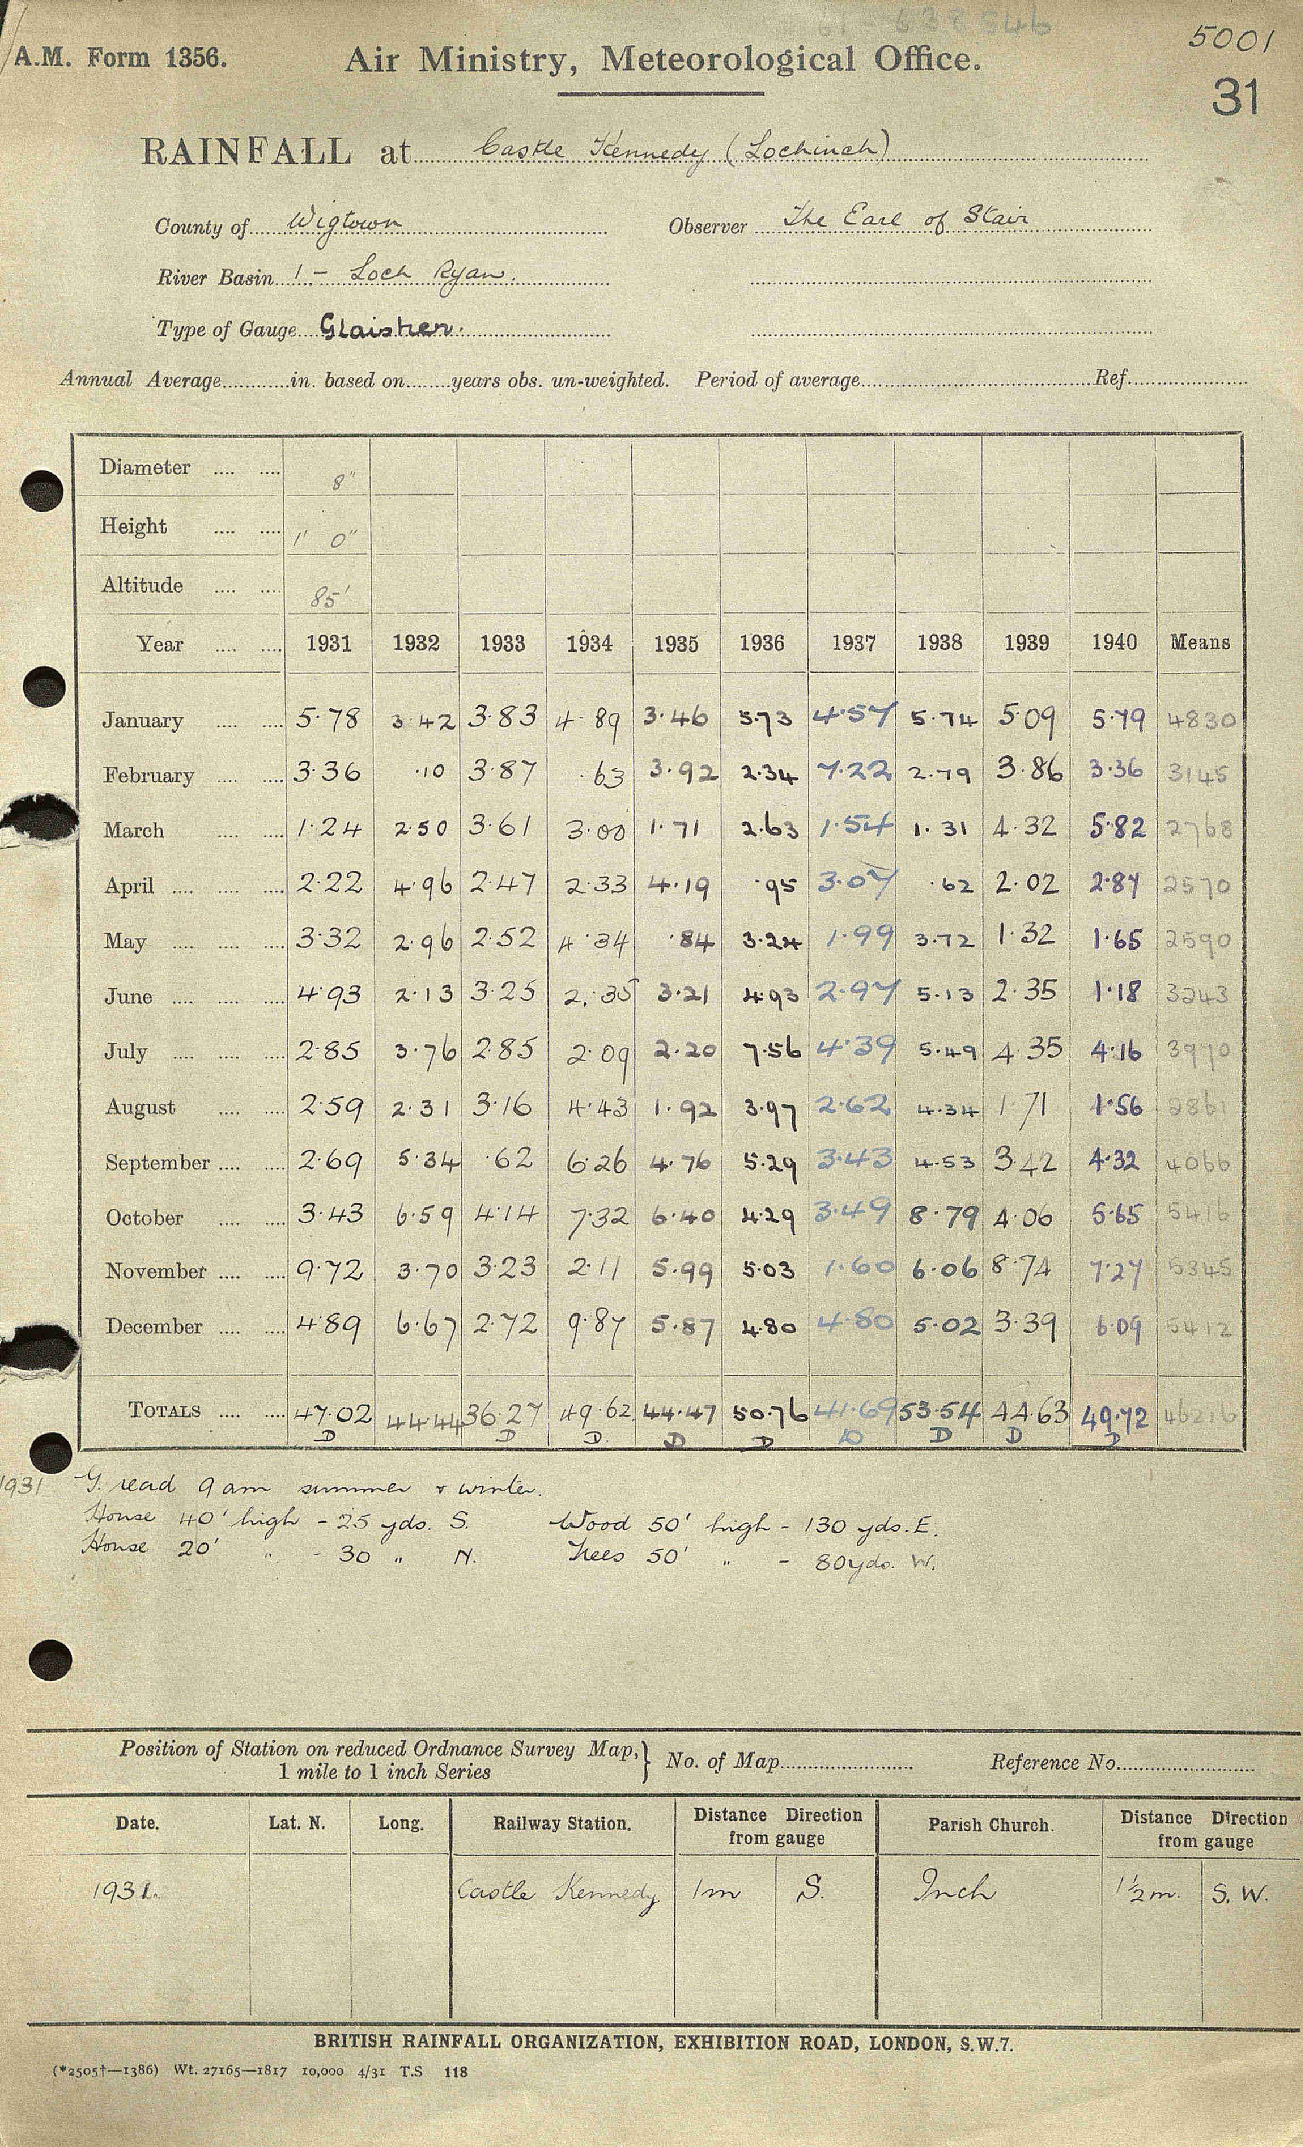 61 638546
5001
A.M. Form 1356. Air Ministry, Meteorological Office.
31
RAINFALL at Castle Kennedy (Lochinch)
County of Wigtown Observer The Earl of Stair
River Basin 1 - Loch Ryan.
Type of Gauge Glaisher.
Annual Average in. based on years obs. un-weighted. Period of average Ref.
Diameter 8"
Height 1' 0"
Altitude 85'
Year 1931 1932 1933 1934 1935 1936 1937 1938 1939 1940 Means
January 5.78 3.42 3.83 4.89 3.46 5.73 4.57 5.74 5.09 5.79 4830
February 3.36 .10 3.87 .63 3.92 2.34 7.22 2.79 3.86 3.36 3145
March 1.24 2.50 3.61 3.00 1.71 2.63 1.54 1.31 4.32 5.82 2768
April 2.22 4.96 2.47 2.33 4.19 .95 3.07 .62 2.02 2.87 2570
May 3.32 2.96 2.52 4.34 .84 3.24 1.99 3.72 1.32 1.65 2590
June 4.93 2.13 3.25 2.35 3.21 4.93 2.97 5.13 2.35 1.18 3243
July 2.85 3.76 2.85 2.09 2.20 7.56 4.39 5.49 4.35 4.16 3970
August 2.59 2.31 3.16 4.43 1.92 3.97 2.62 4.34 1.71 1.56 2861
September 2.69 5.34 .62 6.26 4.76 5.29 3.43 4.53 3.42 4.32 4066
October 3.43 6.59 4.14 7.32 6.40 4.29 3.49 8.79 4.06 5.65 5416
November 9.72 3.70 3.23 2.11 5.99 5.03 1.60 6.06 8.74 7.27 5345
December 4.89 6.67 2.72 9.87 5.87 4.80 4.80 5.02 3.39 6.09 5412
TOTALS 47.02 44.44 36.27 49.62 44.47 50.76 41.69 53.54 44.63 49.72 46216
D D D D D D D D D
1931 G. read 9 am summer & winter.
House 40' high - 25 yds. S. Wood 50' high - 130 yds. E.
House 20' " - 30 " N. Trees 50' " - 80 yds. W.
Position of Station on reduced Ordnance Survey Map, } No. of Map Reference No.
1 mile to 1 inch Series
Date. Lat. N. Long. Railway Station. Distance Direction from gauge Parish Church. Distance Direction from gauge
1931. Castle Kennedy 1m S. Inch 1½m. S.W.
BRITISH RAINFALL ORGANIZATION, EXHIBITION ROAD, LONDON, S.W.7.
(*2505†—1386) Wt. 27165—1817 10,000 4/31 T.S 118